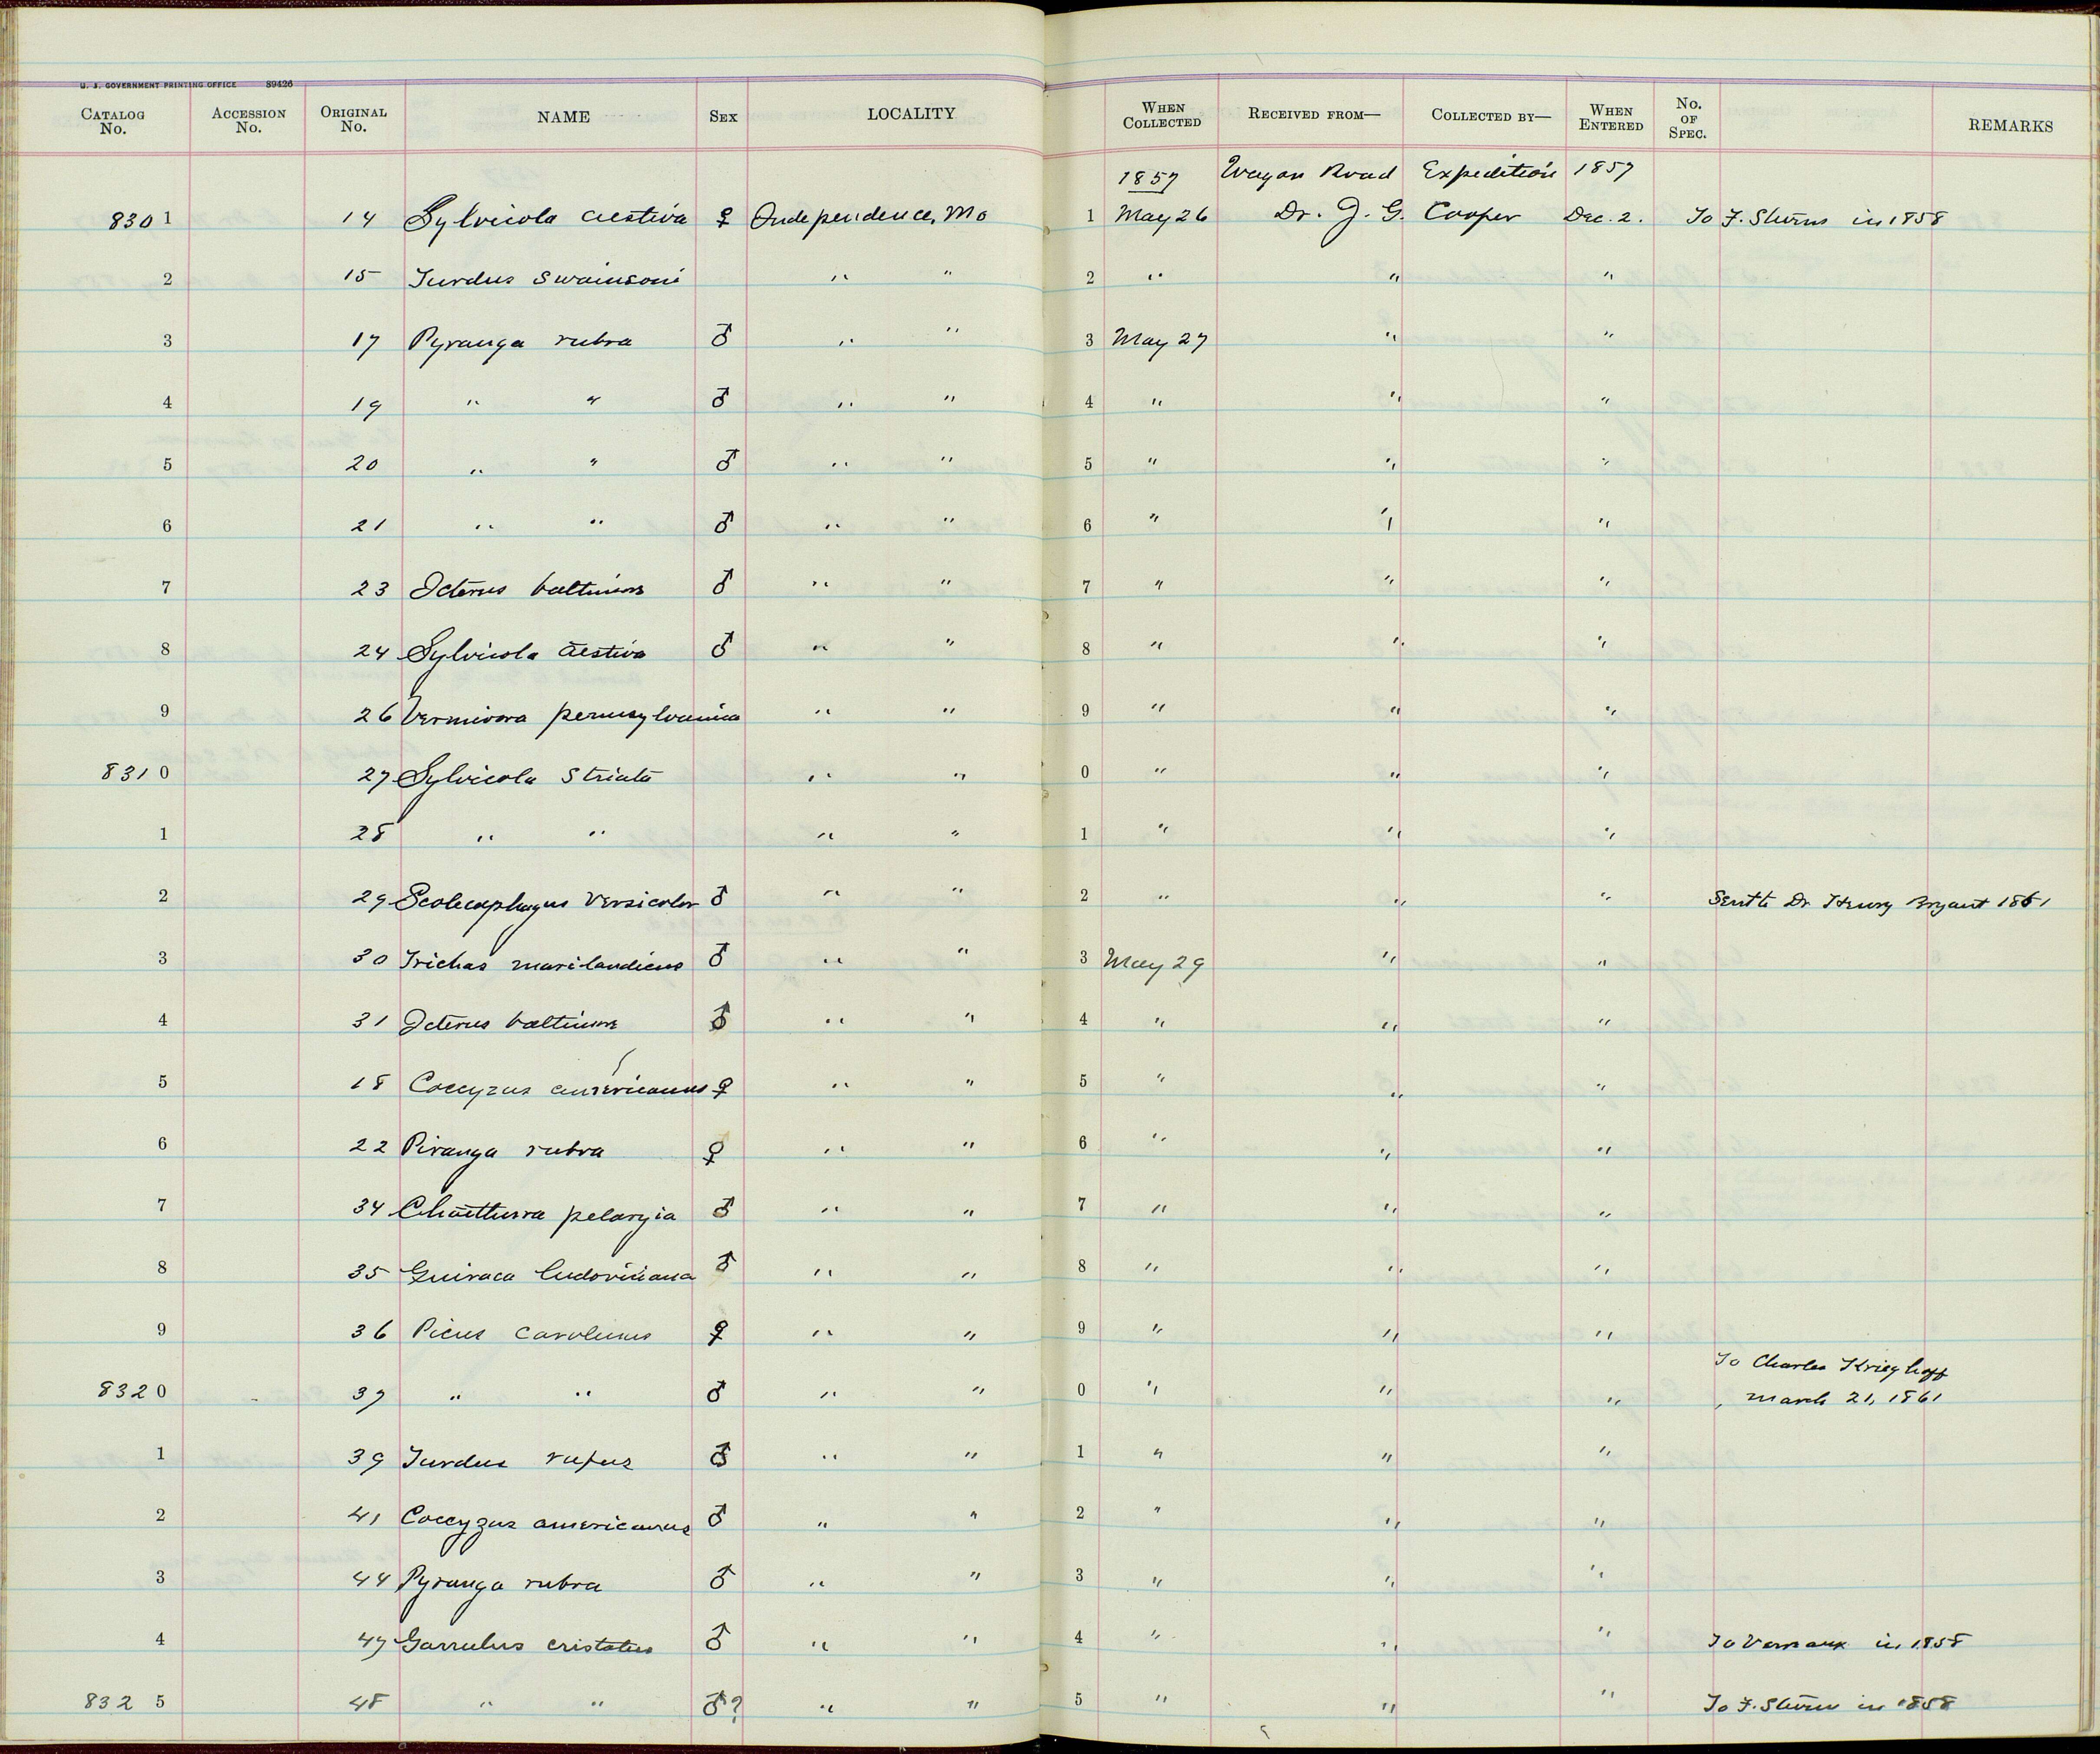 U. S. GOVERNMENT PRINTING OFFICE 89426
CATALOG No. ACCESSION No. ORIGINAL No. NAME SEX LOCALITY WHEN COLLECTED RECEIVED FROM— COLLECTED BY— WHEN ENTERED No. OF SPEC. REMARKS
1857 Wagon Road Expedition 1857
8301 14 Sylvicola aestiva ♀ Independence, Mo 1 May 26 Dr. J. G. Cooper Dec. 2. To F. Sturm in 1858
2 15 Turdus swainsoni " " 2 " " "
3 17 Pyranga rubra ♂ " " 3 May 27 " "
4 19 " " ♂ " " 4 " " "
5 20 " " ♂ " " 5 " " "
6 21 " " ♂ " " 6 " " "
7 23 Icterus baltimore ♂ " " 7 " " "
8 24 Sylvicola aestiva ♂ " " 8 " " "
9 26 Vermivora pennsylvanica " " 9 " " "
8310 27 Sylvicola striata " " 0 " " "
1 28 " " " " 1 " " "
2 29 Scolecophagus versicolor ♂ " " 2 " " " Sent to Dr Henry Bryant 1861
3 30 Trichas marilandicus ♂ " " 3 May 29 " "
4 31 Icterus baltimore ♂ " " 4 " " "
5 18 Coccyzus americanus ♀ " " 5 " " "
6 22 Piranga rubra ♀ " " 6 " " "
7 34 Chaetura pelasgia ♂ " " 7 " " "
8 35 Guiraca ludoviciana ♂ " " 8 " " "
9 36 Picus carolinus ♀ " " 9 " " "
To Charles Krieghoff
8320 37 " " ♂ " " 0 " " " March 21, 1861
1 39 Turdus rufus ♂ " " 1 " " "
2 41 Coccyzus americanus ♂ " " 2 " " "
3 44 Pyranga rubra ♂ " " 3 " " "
4 47 Garrulus cristatus ♂ " " 4 " " " To Verreaux in 1858
8325 48 " " ♂? " " 5 " " " To F. Sturm in 1858